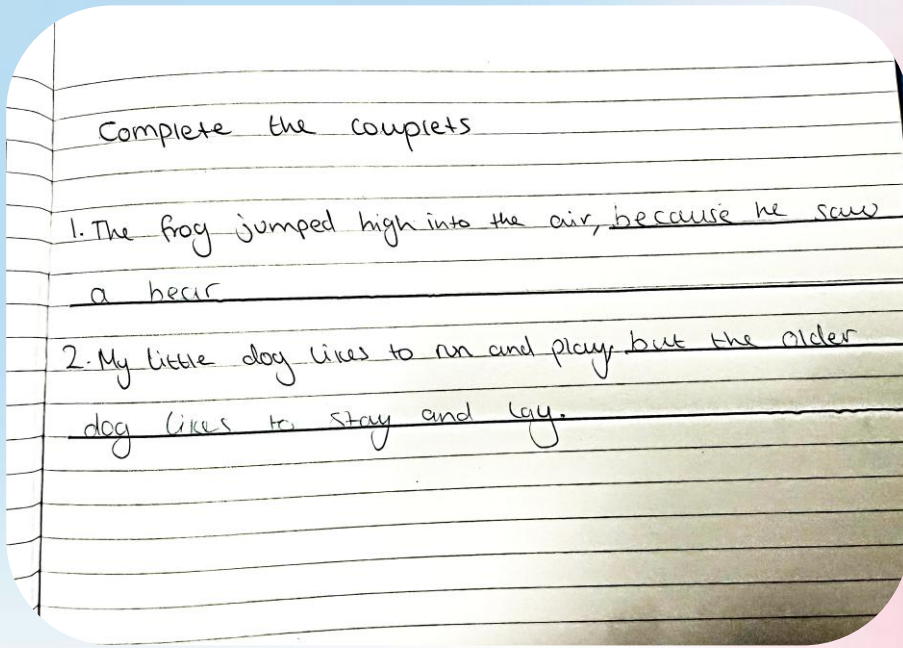 Complete the couplets
1. The frog jumped high into the air, because he saw
a bear
2. My little dog likes to run and play, but the older
dog likes to stay and lay.